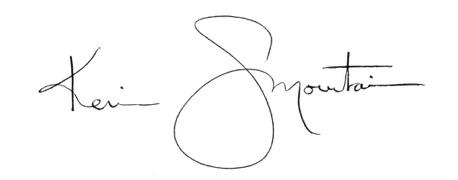 Kevin S Mountain